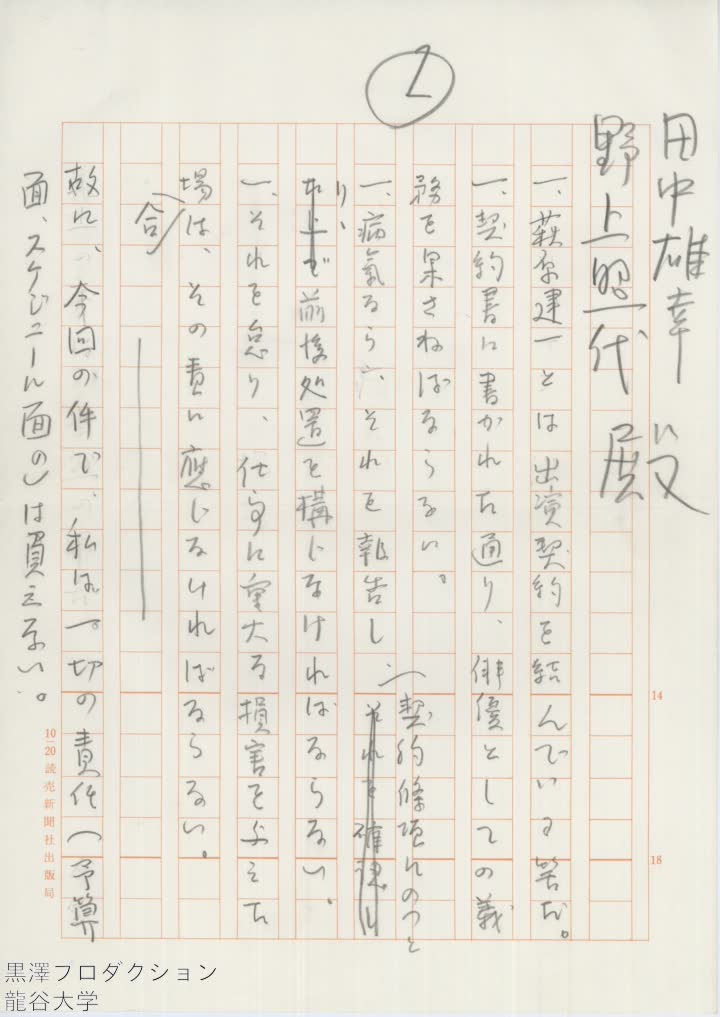 1
田中雄幸
野上照代 殿
一、萩原健一とは出演契約を結んでいる筈だ。
一、契約書に書かれた通り、俳優としての義
務を果さねばならない。
(契約條項にのっと
一、病氣なら、それを報告し、それを確認し
り、
た上で前後処置を構じなければならない。
一、それを怠り、仕事に重大な損害を与えた
場合は、その責に應じなければならない。
故に、今回の件で、私は一切の責任(予算
面、スケジュール面の)は負えない。
14
18
10 20 読売新聞社出版局
黒澤プロダクション
龍谷大学